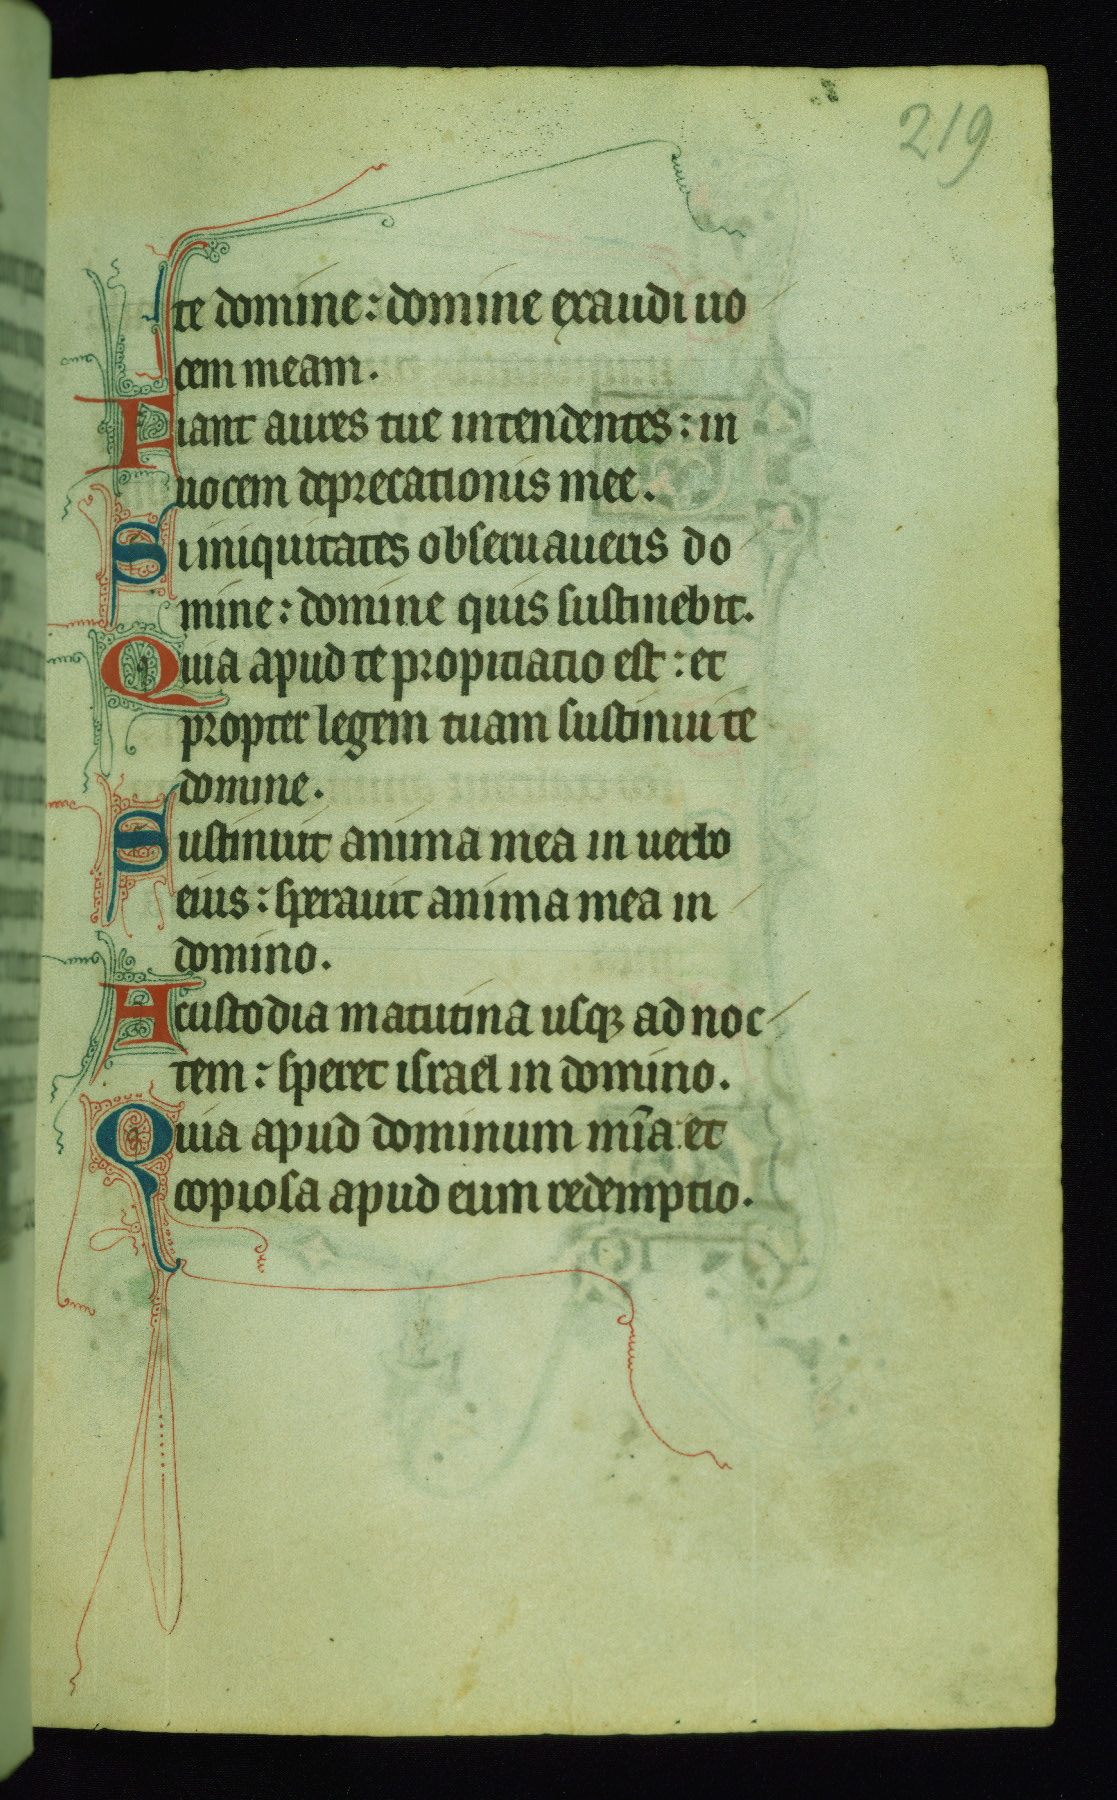 219
te domine : domine exaudi uo
cem meam.
Fiant aures tue intendentes : in
uocem deprecationis mee.
Si iniquitates obseruaueris do
mine : domine quis sustinebit.
Quia apud te propitiatio est : et
propter legem tuam sustinui te
domine.
Sustinuit anima mea in uerbo
eius : sperauit anima mea in
domino.
A custodia matutina usqꝫ ad noc
tem : speret israel in domino.
Quia apud dominum mĩa et
copiosa apud eum redemptio.